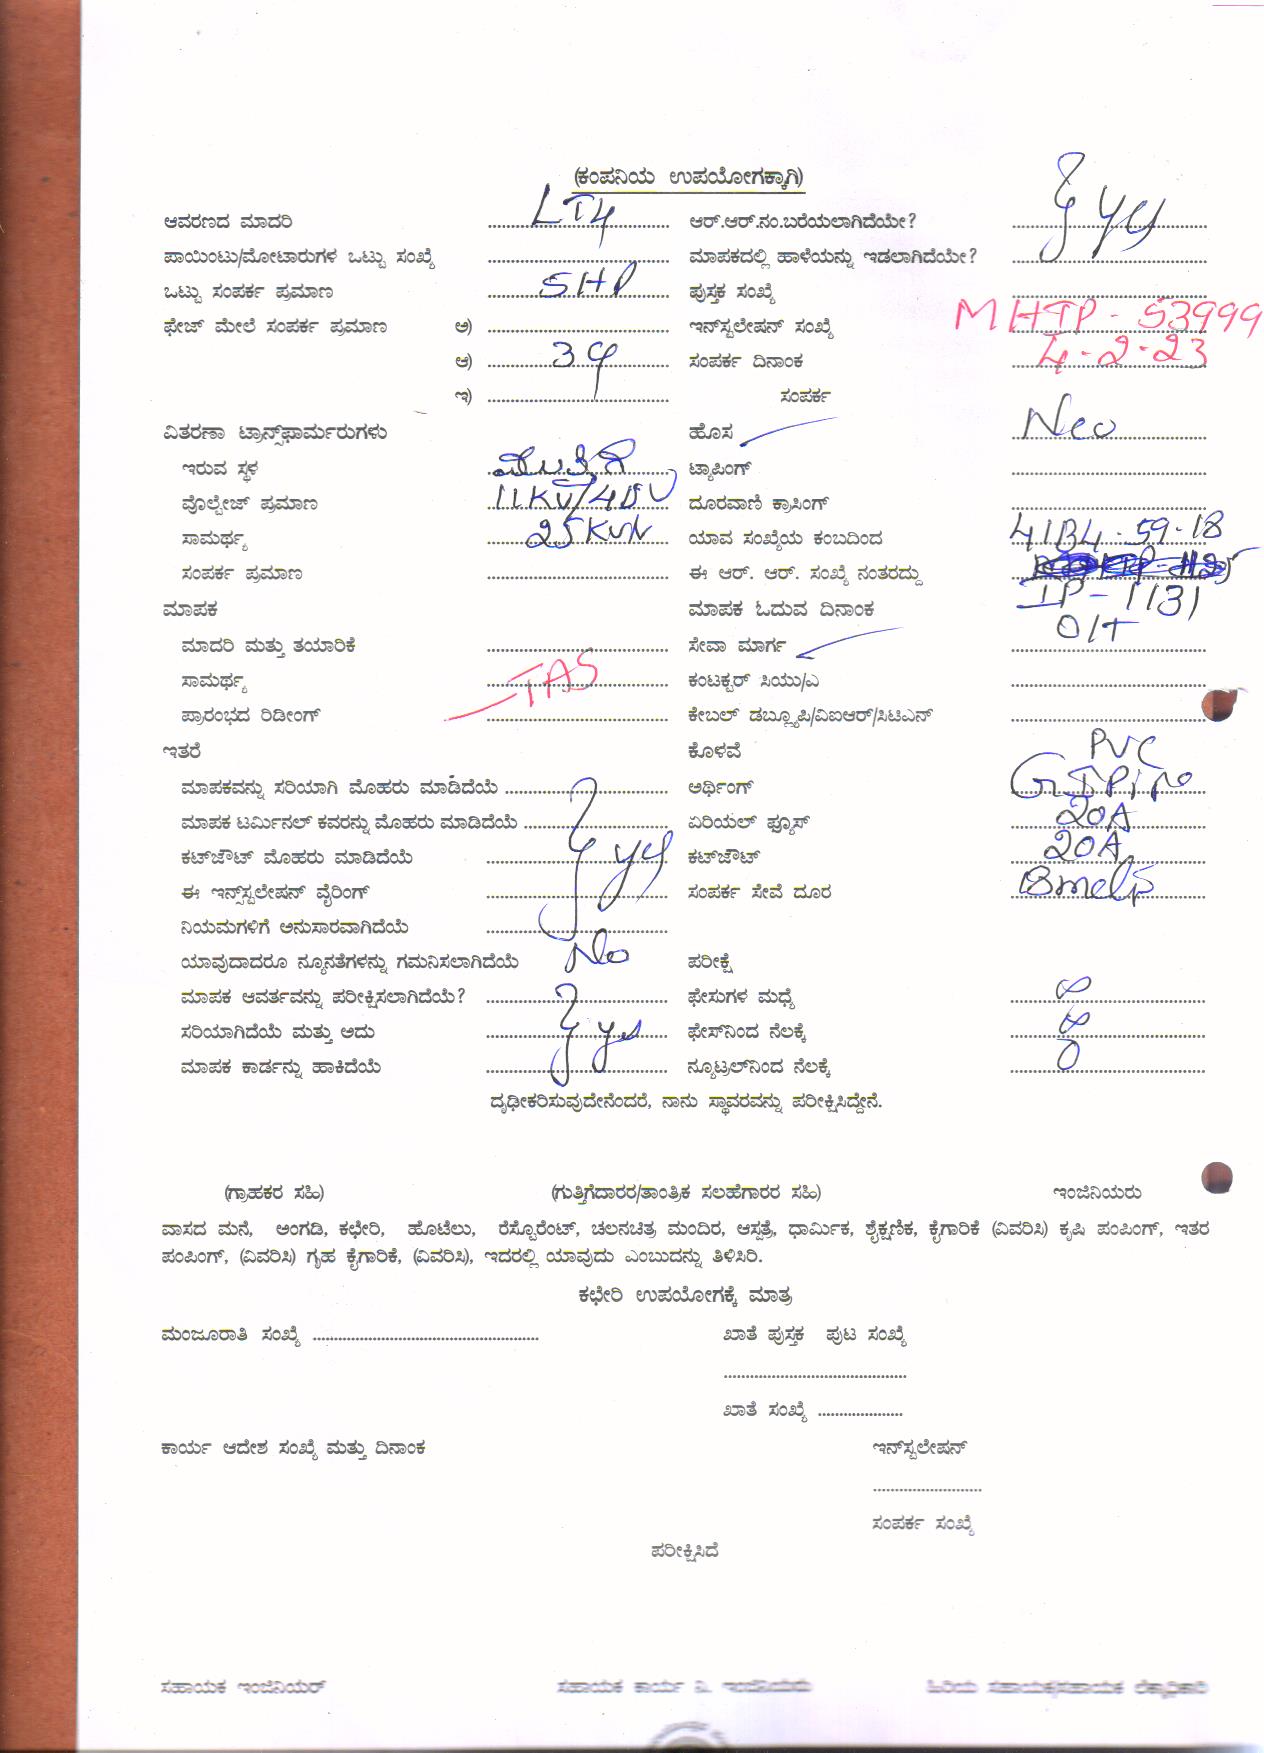 (ಕಂಪನಿಯ ಉಪಯೋಗಕ್ಕಾಗಿ)
ಆವರಣದ ಮಾದರಿ LT4 ಆರ್.ಆರ್.ನಂ.ಬರೆಯಲಾಗಿದೆಯೇ? yes
ಪಾಯಿಂಟು/ಮೋಟಾರುಗಳ ಒಟ್ಟು ಸಂಖ್ಯೆ ಮಾಪಕದಲ್ಲಿ ಹಾಳೆಯನ್ನು ಇಡಲಾಗಿದೆಯೇ?
ಒಟ್ಟು ಸಂಪರ್ಕ ಪ್ರಮಾಣ 5HP ಪುಸ್ತಕ ಸಂಖ್ಯೆ
ಫೇಜ್ ಮೇಲೆ ಸಂಪರ್ಕ ಪ್ರಮಾಣ ಅ) ಇನ್‌ಸ್ಟಲೇಷನ್ ಸಂಖ್ಯೆ MHTP - 53999
ಆ) 3φ ಸಂಪರ್ಕ ದಿನಾಂಕ 4-2-23
ಇ) ಸಂಪರ್ಕ
ವಿತರಣಾ ಟ್ರಾನ್ಸ್‌ಫಾರ್ಮರುಗಳು ಹೊಸ New
ಇರುವ ಸ್ಥಳ ಟ್ಯಾಪಿಂಗ್
ವೊಲ್ಟೇಜ್ ಪ್ರಮಾಣ 11KV/ ದೂರವಾಣಿ ಕ್ರಾಸಿಂಗ್
ಸಾಮರ್ಥ್ಯ 25KVA ಯಾವ ಸಂಖ್ಯೆಯ ಕಂಬದಿಂದ
ಸಂಪರ್ಕ ಪ್ರಮಾಣ ಈ ಆರ್. ಆರ್. ಸಂಖ್ಯೆ ನಂತರದ್ದು
IP - 1131
ಮಾಪಕ ಮಾಪಕ ಓದುವ ದಿನಾಂಕ
ಮಾದರಿ ಮತ್ತು ತಯಾರಿಕೆ ಸೇವಾ ಮಾರ್ಗ O/H
ಸಾಮರ್ಥ್ಯ TAS ಕಂಟಕ್ಟರ್ ಸಿಯು/ಎ
ಪ್ರಾರಂಭದ ರಿಡೀಂಗ್ ಕೇಬಲ್ ಡಬ್ಲ್ಯೂಪಿ/ವಿಐಆರ್/ಸಿಟಿಎಸ್
ಇತರೆ ಕೊಳವೆ PVC
ಮಾಪಕವನ್ನು ಸರಿಯಾಗಿ ಮೊಹರು ಮಾಡಿದೆಯೆ ಅರ್ಥಿಂಗ್
ಮಾಪಕ ಟರ್ಮಿನಲ್ ಕವರನ್ನು ಮೊಹರು ಮಾಡಿದೆಯೆ ಏರಿಯಲ್ ಫ್ಯೂಸ್ 20A
ಕಟ್‌ಔಟ್ ಮೊಹರು ಮಾಡಿದೆಯೆ yes ಕಟ್‌ಔಟ್ 20A
ಈ ಇನ್‌ಸ್ಟಲೇಷನ್ ವೈರಿಂಗ್ ಸಂಪರ್ಕ ಸೇವೆ ದೂರ
ನಿಯಮಗಳಿಗೆ ಅನುಸಾರವಾಗಿದೆಯೆ
ಯಾವುದಾದರೂ ನ್ಯೂನತೆಗಳನ್ನು ಗಮನಿಸಲಾಗಿದೆಯೆ No ಪರೀಕ್ಷೆ
ಮಾಪಕ ಆವರ್ತವನ್ನು ಪರೀಕ್ಷಿಸಲಾಗಿದೆಯೆ? ಫೇಸುಗಳ ಮಧ್ಯೆ
ಸರಿಯಾಗಿದೆಯೆ ಮತ್ತು ಅದು yes ಫೇಸ್‌ನಿಂದ ನೆಲಕ್ಕೆ
ಮಾಪಕ ಕಾರ್ಡನ್ನು ಹಾಕಿದೆಯೆ ನ್ಯೂಟ್ರಲ್‌ನಿಂದ ನೆಲಕ್ಕೆ
ದೃಢೀಕರಿಸುವುದೇನೆಂದರೆ, ನಾನು ಸ್ಥಾವರವನ್ನು ಪರೀಕ್ಷಿಸಿದ್ದೇನೆ.
(ಗ್ರಾಹಕರ ಸಹಿ) (ಗುತ್ತಿಗೆದಾರರ/ತಾಂತ್ರಿಕ ಸಲಹೆಗಾರರ ಸಹಿ) ಇಂಜಿನಿಯರು
ವಾಸದ ಮನೆ, ಅಂಗಡಿ, ಕಛೇರಿ, ಹೊಟೆಲು, ರೆಸ್ಟೊರೆಂಟ್, ಚಲನಚಿತ್ರ ಮಂದಿರ, ಆಸ್ಪತ್ರೆ, ಧಾರ್ಮಿಕ, ಶೈಕ್ಷಣಿಕ, ಕೈಗಾರಿಕೆ (ವಿವರಿಸಿ) ಕೃಷಿ ಪಂಪಿಂಗ್, ಇತರ
ಪಂಪಿಂಗ್, (ವಿವರಿಸಿ) ಗೃಹ ಕೈಗಾರಿಕೆ, (ವಿವರಿಸಿ), ಇದರಲ್ಲಿ ಯಾವುದು ಎಂಬುದನ್ನು ತಿಳಿಸಿರಿ.
ಕಛೇರಿ ಉಪಯೋಗಕ್ಕೆ ಮಾತ್ರ
ಮಂಜೂರಾತಿ ಸಂಖ್ಯೆ ಖಾತೆ ಪುಸ್ತಕ ಪುಟ ಸಂಖ್ಯೆ
ಖಾತೆ ಸಂಖ್ಯೆ
ಕಾರ್ಯ ಆದೇಶ ಸಂಖ್ಯೆ ಮತ್ತು ದಿನಾಂಕ ಇನ್‌ಸ್ಟಲೇಷನ್
ಸಂಪರ್ಕ ಸಂಖ್ಯೆ
ಪರೀಕ್ಷಿಸಿದೆ
ಸಹಾಯಕ ಇಂಜಿನಿಯರ್ ಸಹಾಯಕ ಕಾರ್ಯ ನಿ. ಇಂಜಿನಿಯರು ಹಿರಿಯ ಸಹಾಯಕ/ಸಹಾಯಕ ಲೆಕ್ಕಾಧಿಕಾರಿ